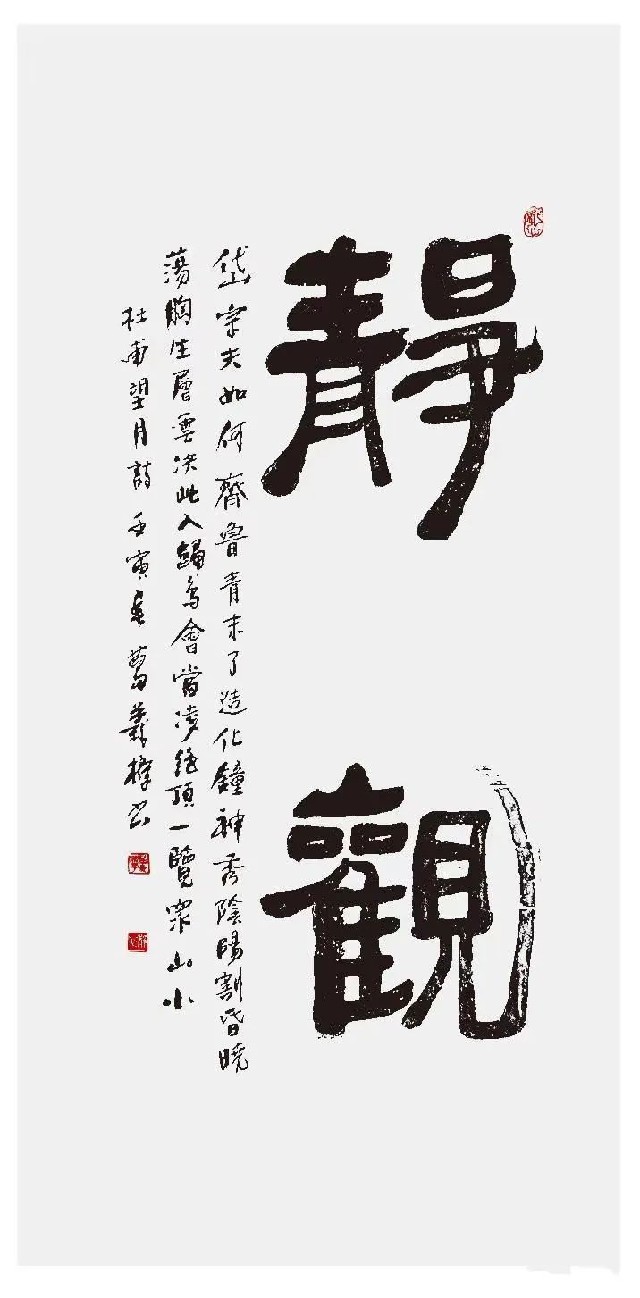 靜觀
岱宗夫如何齊魯青未了造化鐘神秀陰陽割昏曉
蕩胸生層雲决此入歸鳥會當凌絕頂一覽眾山小
杜甫望月詩壬寅春葛義樟书